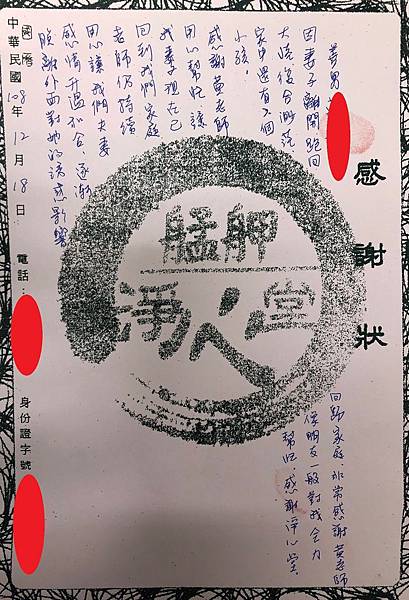 感謝狀
善男
因妻子離開跑回
大陸後
家中還有三個
小孩，
感謝黃老師
用心幫忙，讓
我妻現在已
回到我們家庭
老師仍持續
用心讓我們夫妻
感情升溫和合，逐漸
脫離外面對她的誘惑影響
回歸家庭，非常感謝黃老師
像朋友一般對我全力
幫忙，感謝淨心堂。
艋舺
淨心堂
國曆
中華民國108年12月18日 電話： 身份證字號